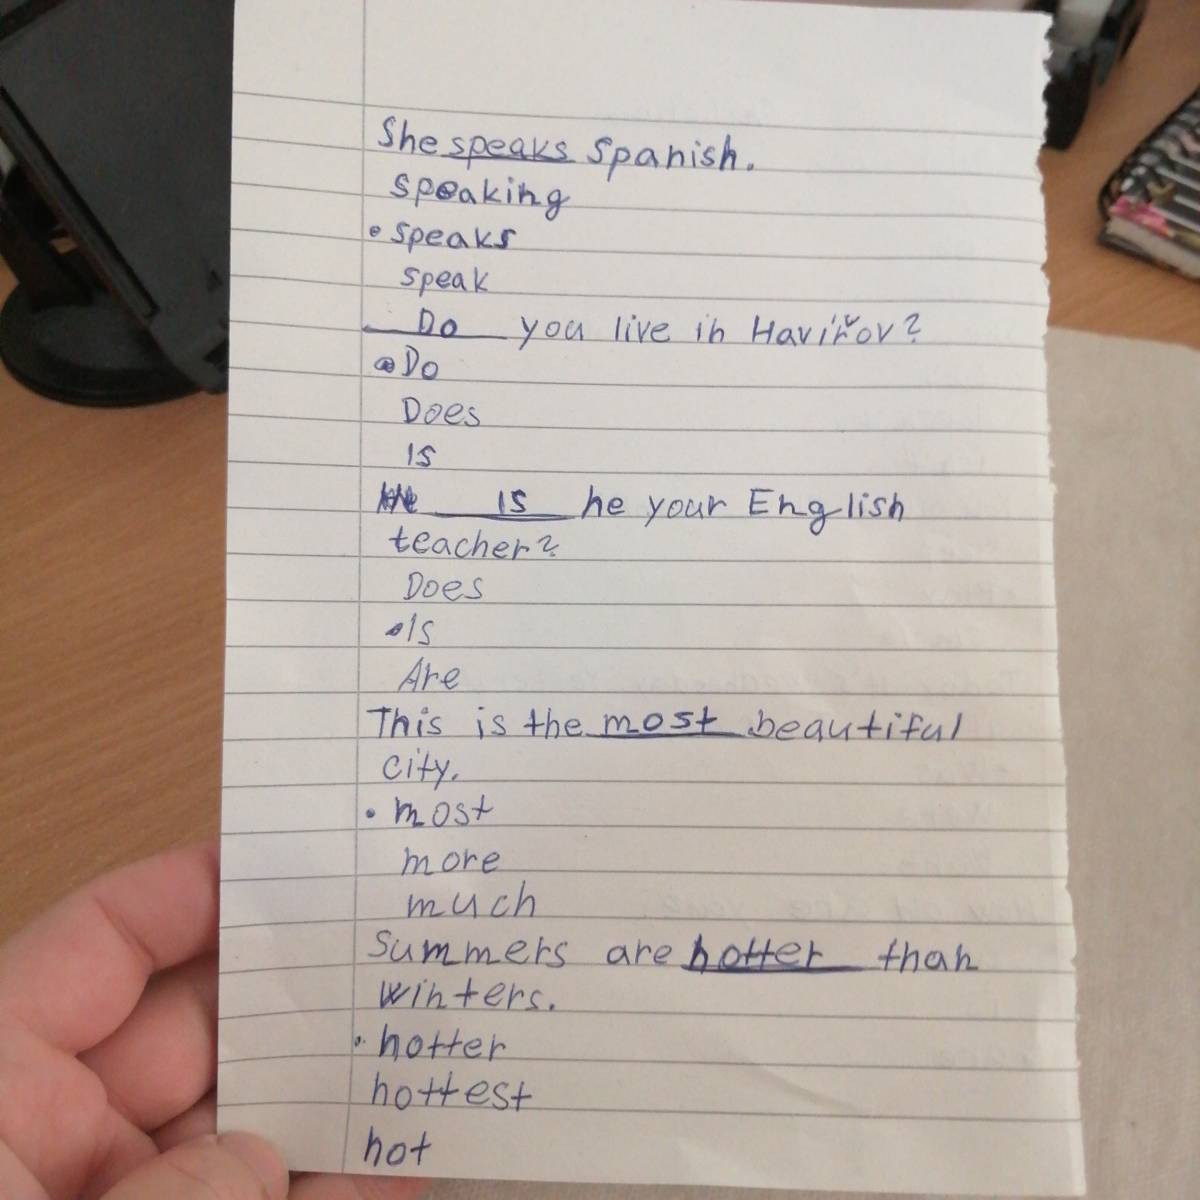 She speaks Spanish.
speaking
• speaks
speak
Do you live in Havířov?
• Do
Does
Is
is he your English
teacher?
Does
• Is
Are
This is the most beautiful
city.
• most
more
much
Summers are hotter than
winters.
• hotter
hottest
hot